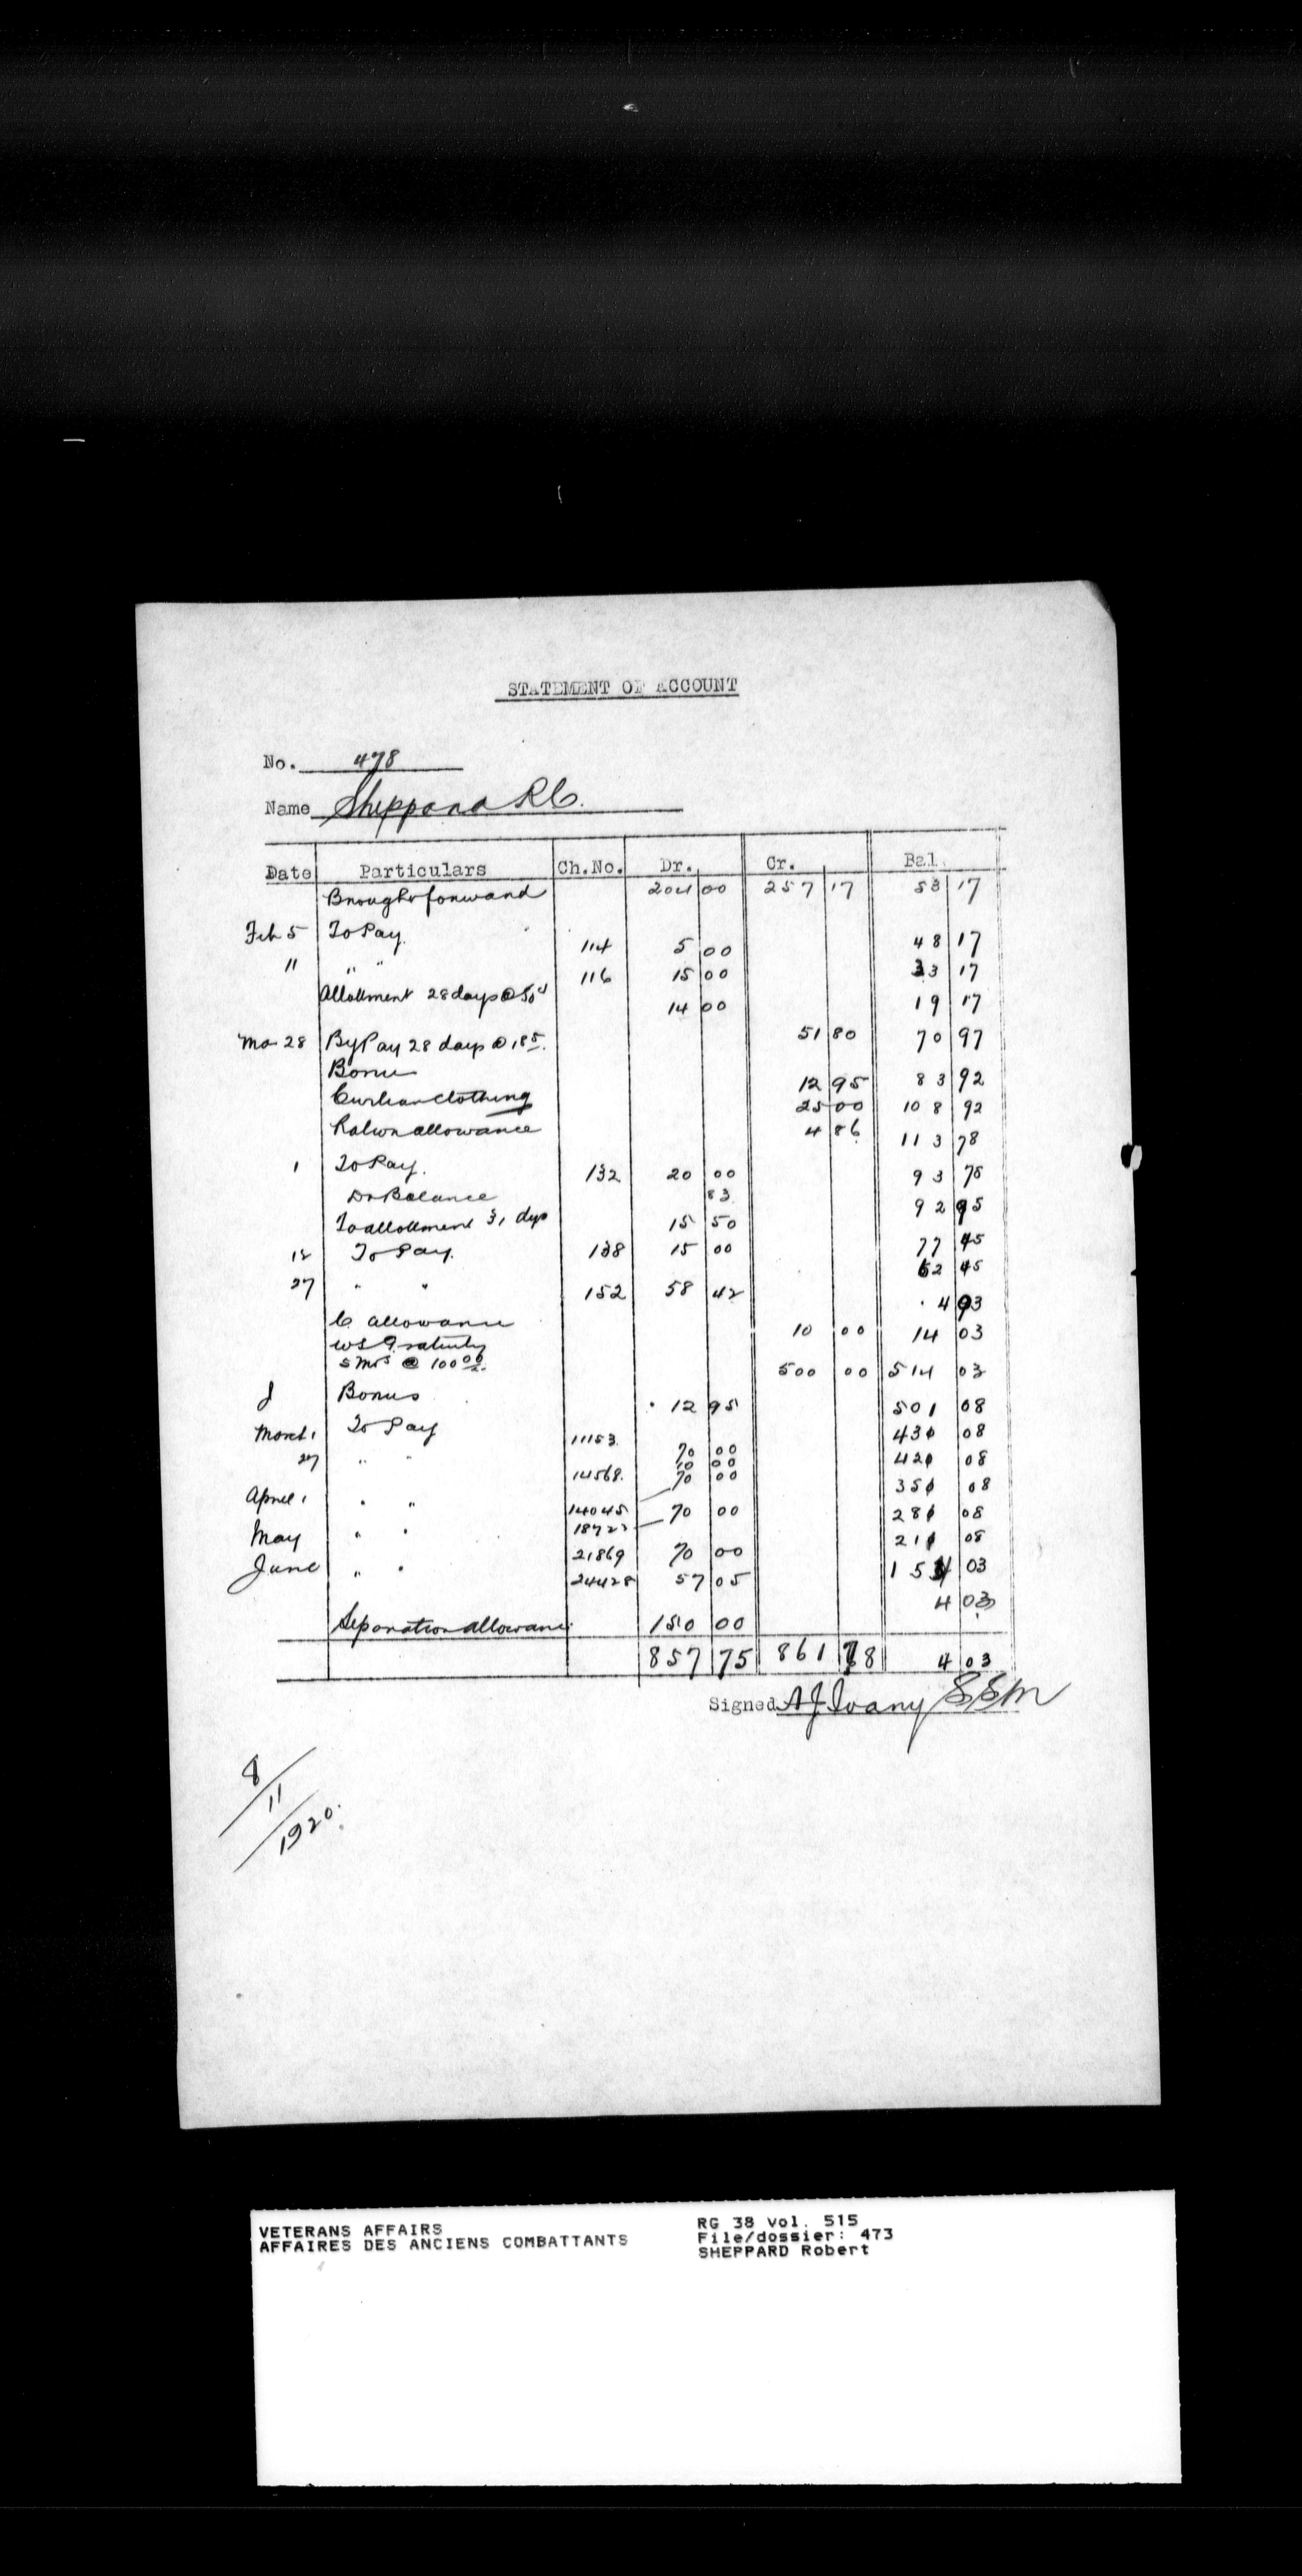 STATEMENT OF ACCOUNT
No. 478
Name Sheppard R C.
Date Particulars Ch.No. Dr. Cr. Bal.
Brought forward 204 00 257 17 53 17
Feb 5 To Pay. 114 5 00 48 17
11 " " 116 15 00 33 17
Allotment 28 days @ 50cts 14 00 19 17
28 By Pay 28 days @ 1.85. 51 80 70 97
Bonus 12 95 83 92
Clothing 25 00 108 92
Ration allowance 4 86 113 78
1 To Pay. 132 20 00 93 78
Dr Balance 83 92 95
To allotment 31 dys 15 50 77 45
12 To Pay. 138 15 00 62 45
27 " " 152 58 42 4 03
C. allowance 10 00 14 03
W S Gratuity
5 mos @ 100 00 500 00 514 03
Bonus 12 95 501 08
March 1 To Pay 11153. 70 00 431 08
27 " " 14568. 10 00 421 08
April 1 " " 14045 70 00 351 08
May " " 18722 70 00 281 08
June " " 21869 70 00 211 08
24428 57 05 154 03
Separation allowance 150 00 4 03
857 75 861 78 4 03
Signed A J Ivany SSM
8/11/1920.
VETERANS AFFAIRS
AFFAIRES DES ANCIENS COMBATTANTS
RG 38 Vol. 515
File/dossier: 473
SHEPPARD Robert